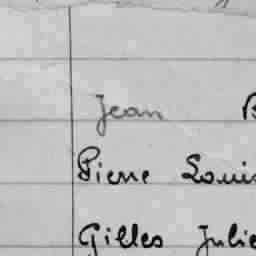 Jean
Pierre Louis
Gilles Julie